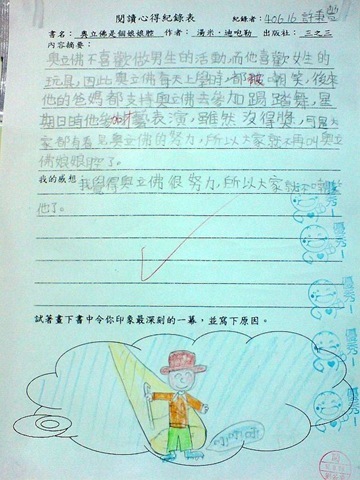 閱讀心得紀錄表 紀錄者：40616
書名：奧立佛是個娘娘腔 作者：湯米．迪咆勒 出版社：三之三
內容摘要：
奧立佛不喜歡做男生的活動，而他喜歡女生的
玩具，因此奧立佛每天上學時，都被嘲笑，後來
他的爸媽都支持奧立佛去參加踢踏舞，星
期日時他參加才藝表演，雖然沒得獎，可是大
家都有看見奧立佛的努力，所以大家就不再叫奧立
佛娘娘腔了。
我的感想：我覺得奧立佛很努力，所以大家就不嘲
他了。
優秀！
優秀！
優秀！
優秀！
優秀！
試著畫下書中令你印象最深刻的一幕，並寫下原因。